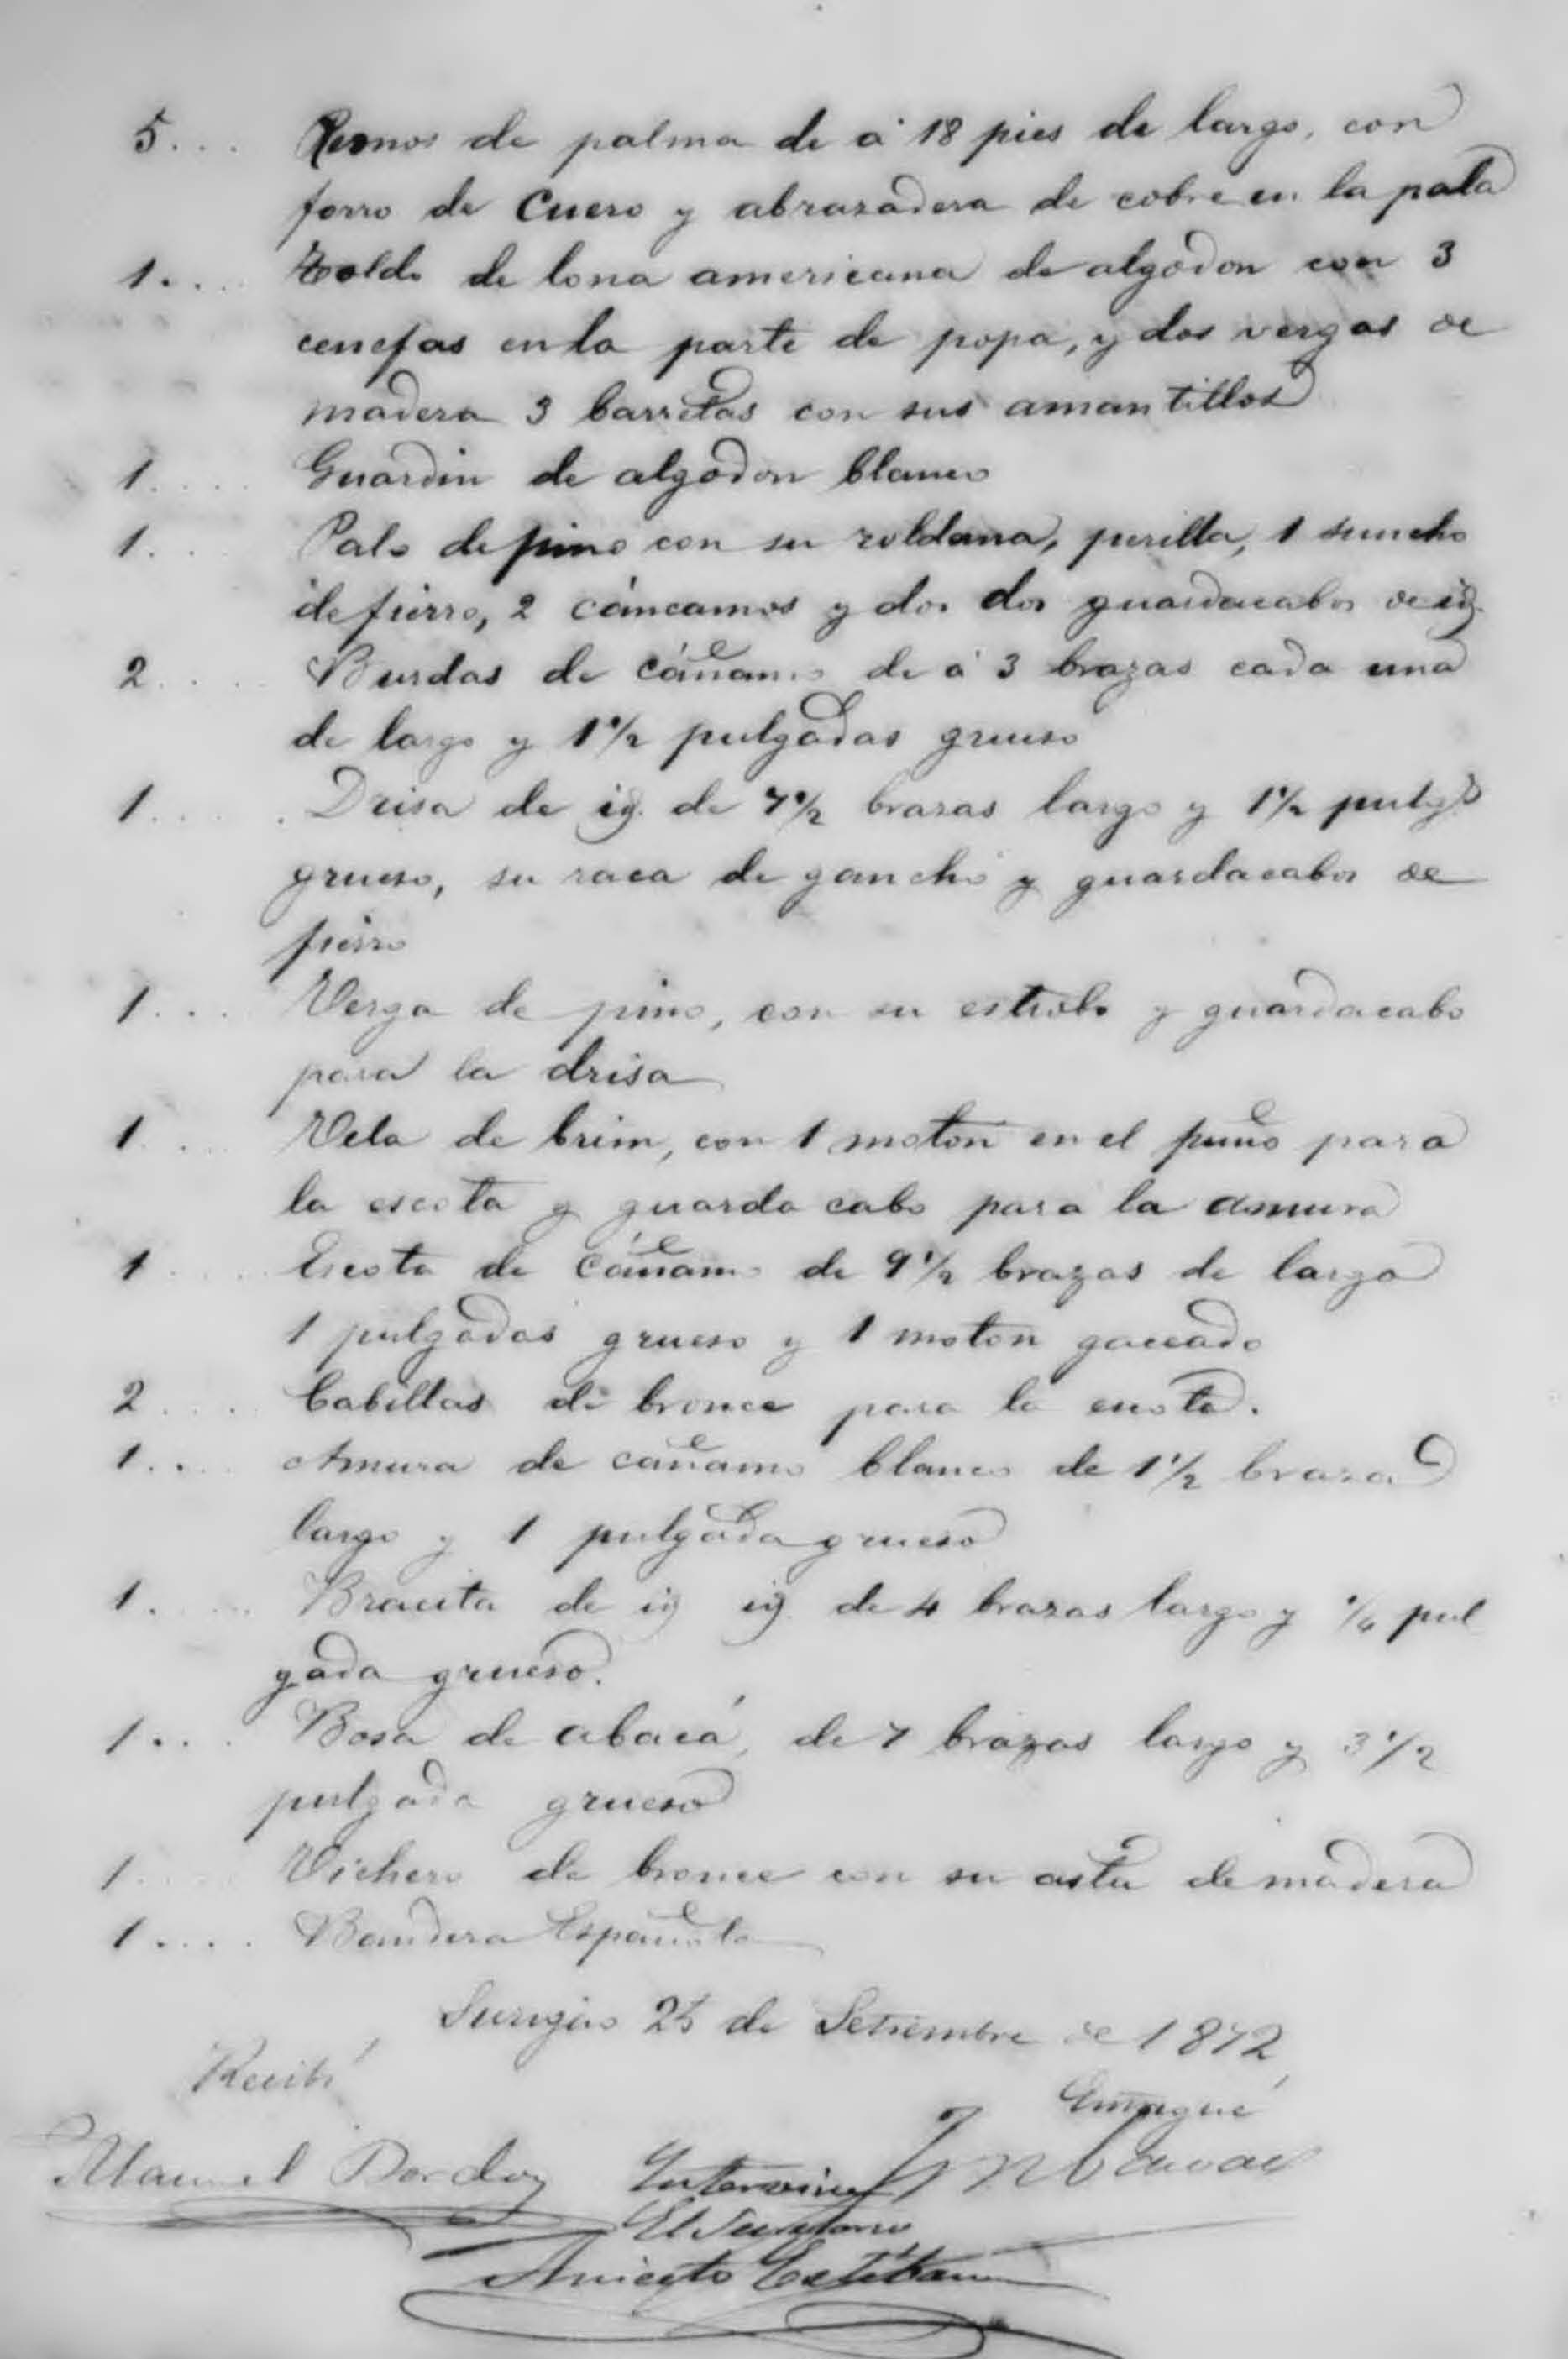 5.... Remos de palma de á 18 pies de largo, con
forro de Cuero y abrazadera de cobre en la pala
1.... Toldo de lona americana de algodon con 3
cenefas en la parte de popa, y dos vergas de
madera 3 barretas con sus amantillos
1.... Guardin de algodon blanco
1.... Palo de pino con su roldana, perilla, 1 suncho
de fierro, 2 cáncamos y dos dos guardacabos de ig.
2.... Burdas de cáñamo de á 3 brazas cada una
de largo y 1 1/2 pulgadas grueso
1.... Drisa de ig. de 7 1/2 brazas largo y 1 1/2 pulgs
grueso, su raca de gancho y guardacabos de
fierro
1.... Verga de pino, con su estrobo y guardacabo
para la drisa
1.... Vela de brim, con 1 moton en el puño para
la escota y guarda cabo para la amura
1.... Escota de cáñamo de 9 1/2 brazas de largo
1 pulgadas grueso y 1 moton gaceado
2.... Cabillas de bronce para la escota.
1.... Amura de cañamo blanco de 1 1/2 braza
largo y 1 pulgada grueso
1.... Braceta de ig ig. de 4 brazas largo y 1/4 pul
gada grueso.
1.... Bosa de abacá, de 7 brazas largo y 3 1/2
pulgada grueso
1.... Vichero de bronce con su asta de madera
1.... Bandera Española
Surigao 25 de Setiembre de 1872
Recibí
Entregué
Manuel Intervine
El
Aniceto Estéban